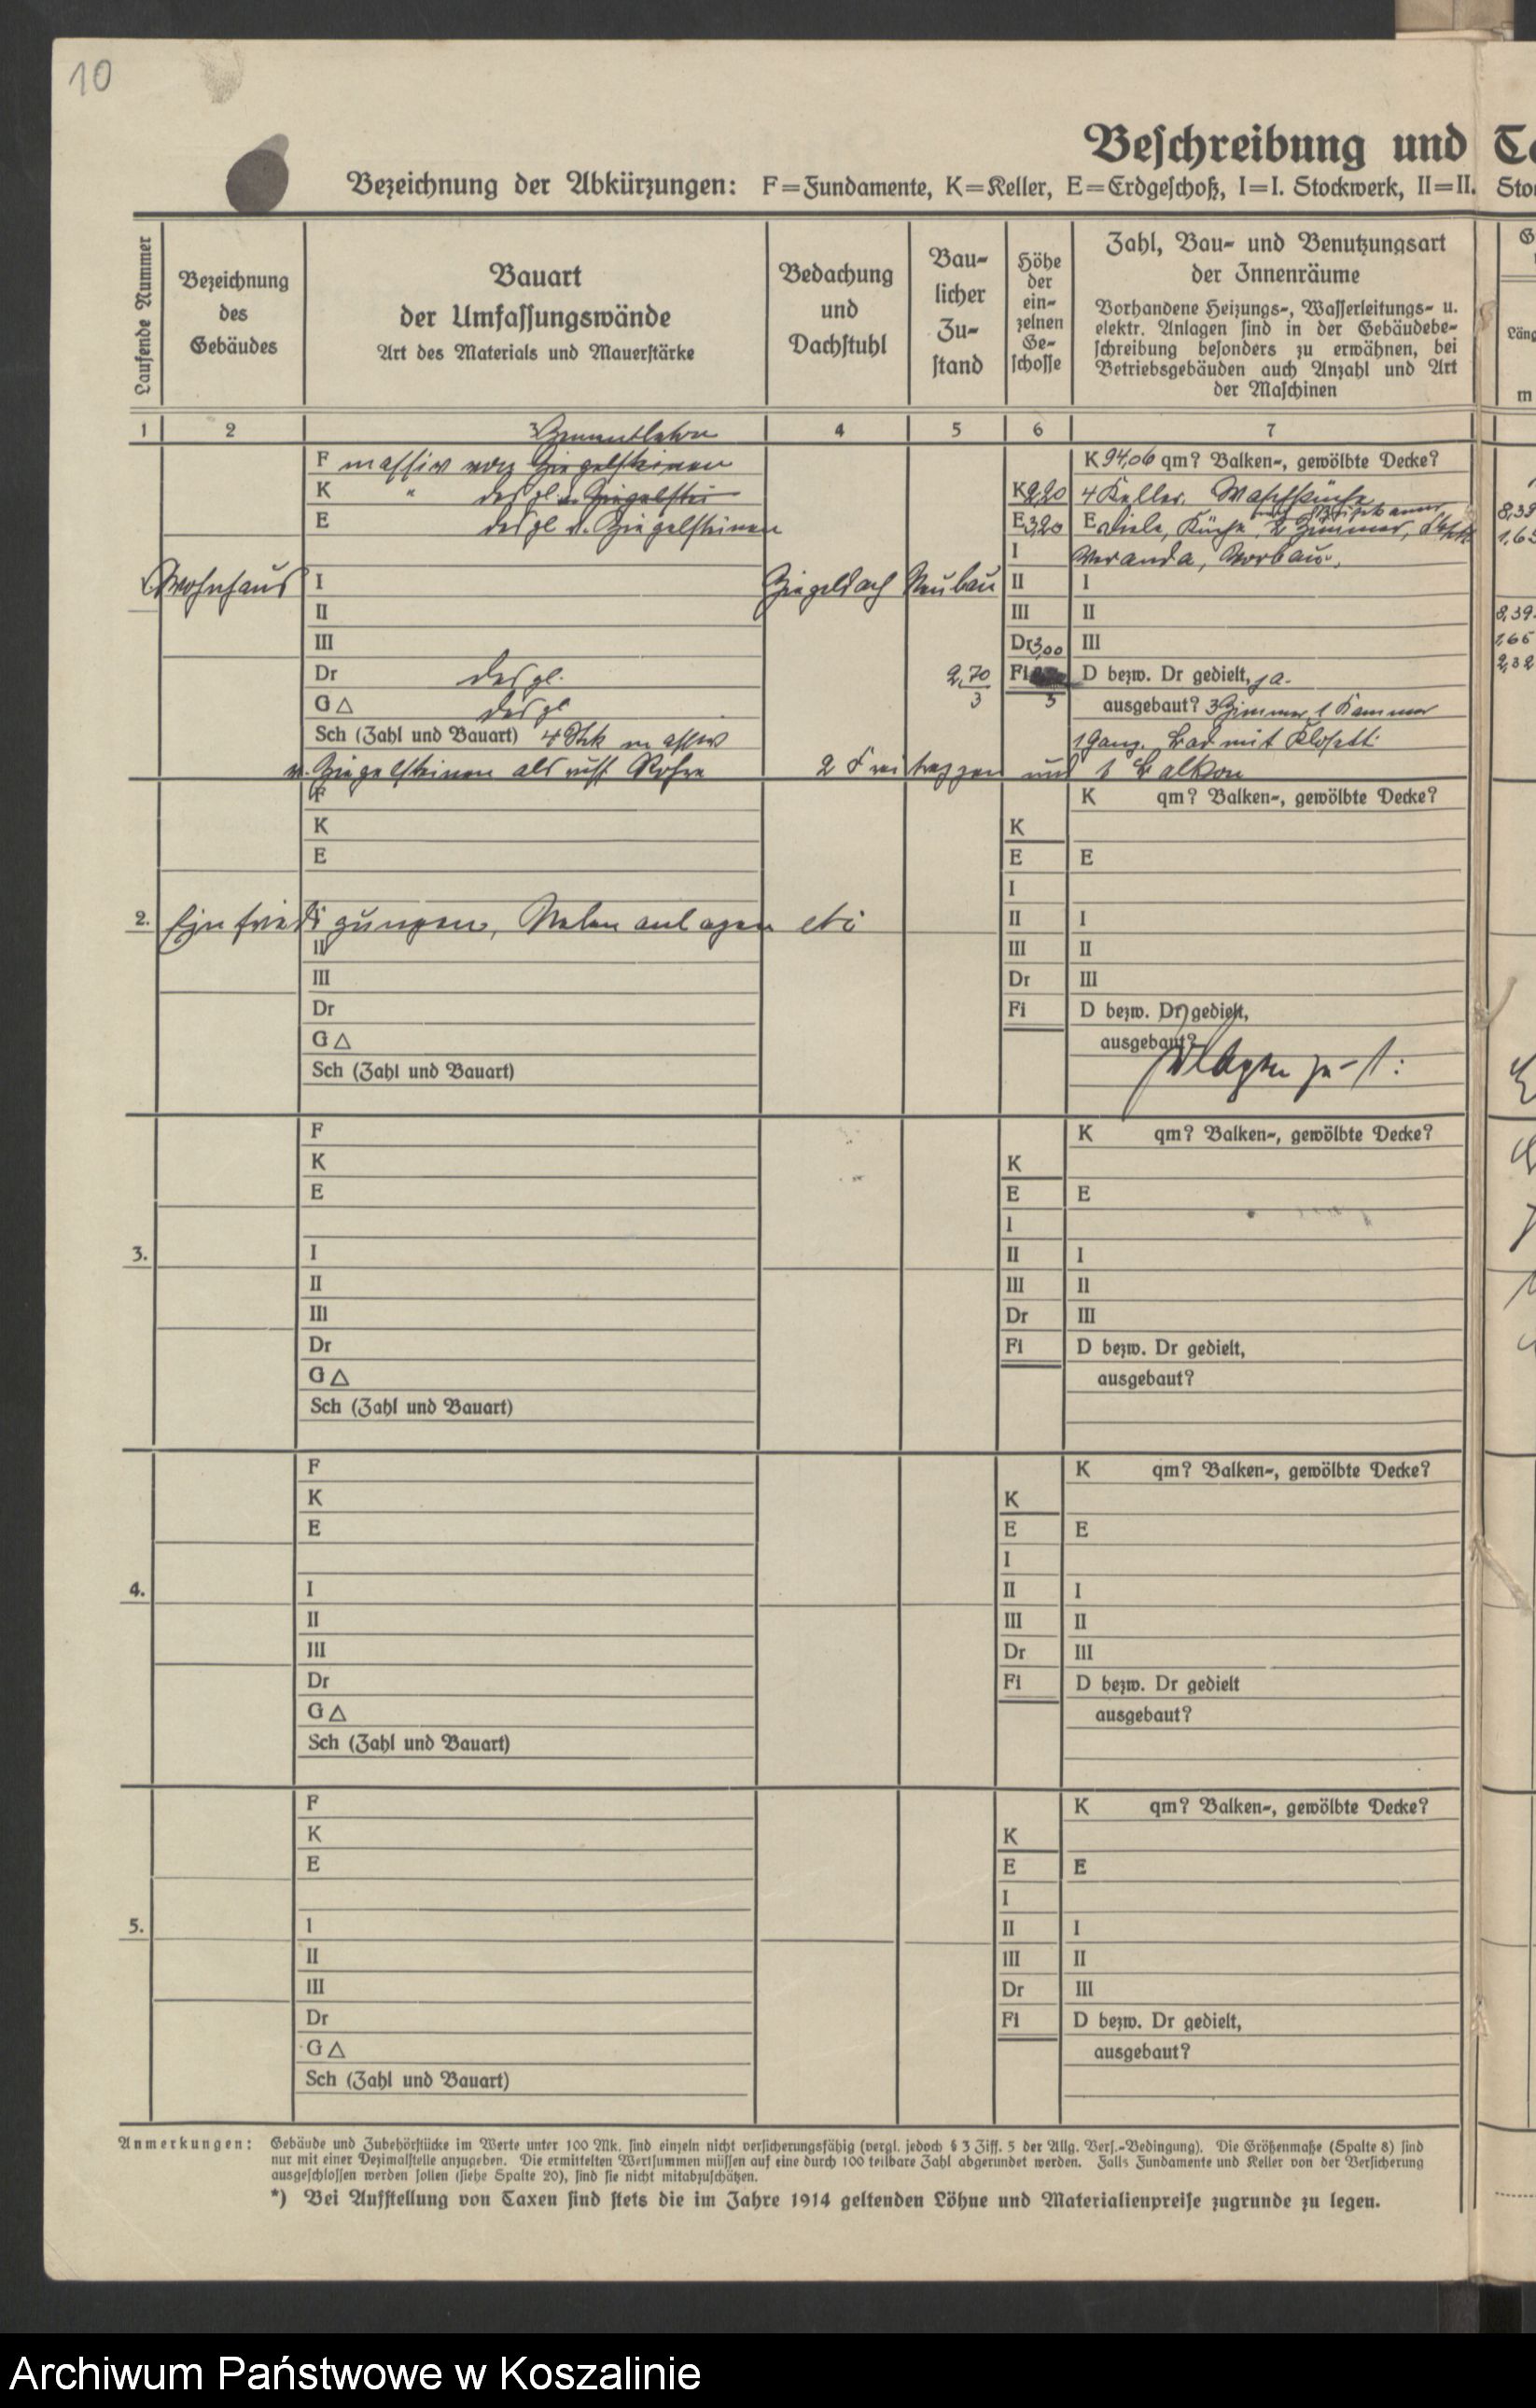 10
Beschreibung und
Bezeichnung der Abkürzungen: F=Fundamente, K=Keller, E=Erdgeschoß, I=I. Stockwerk, II=II.
Laufende Nummer
Bezeichnung
des
Gebäudes
Bauart
der Umfassungswände
Art des Materials und Mauerstärke
Bedachung
und
Dachstuhl
Bau-
licher
Zu-
stand
Höhe
der
ein-
zelnen
Ge-
schosse
Zahl, Bau- und Benutzungsart
der Innenräume
Vorhandene Heizungs-, Wasserleitungs- u.
elektr. Anlagen sind in der Gebäudebe-
schreibung besonders zu erwähnen, bei
Betriebsgebäuden auch Anzahl und Art
der Maschinen
m
1 2 4 5 6 7
F massiv von Ziegelsteinen
K " desgl. v. Ziegelstei
E desgl v. Ziegelsteinen
K 94,06 qm? Balken-, gewölbte Decke?
K 2,20 4 Keller, Waschküche
E 3,20 E Diele, Küche, 2 Zimmer,
I Veranda, Vorbau,
Wohnhaus I Ziegeldach Neubau II I
II III II
III Dr 3,00 III
Dr desgl. 2,70 Fi D bezw. Dr gedielt, ja.
3 3
G △ desgl ausgebaut? 3 Zimmer 1 Kammer
Sch (Zahl und Bauart) 4 Stk massiv 1 Gang. Bad mit Klosett
v. Ziegelsteinen als russ Rohre 2 Freitreppen und 1 Balkon
F K qm? Balken-, gewölbte Decke?
K K
E E E
I
2. Einfriedigungen, Nebenanlagen etc II I
II III II
III Dr III
Dr Fi D bezw. Dr gedielt,
G △ ausgebaut?
Sch (Zahl und Bauart)
F K qm? Balken-, gewölbte Decke?
K K
E E E
I
3. I II I
II III II
III Dr III
Dr Fi D bezw. Dr gedielt,
G △ ausgebaut?
Sch (Zahl und Bauart)
F K qm? Balken-, gewölbte Decke?
K K
E E E
I
4. I II I
II III II
III Dr III
Dr Fi D bezw. Dr gedielt
G △ ausgebaut?
Sch (Zahl und Bauart)
F K qm? Balken-, gewölbte Decke?
K K
E E E
I
5. I II I
II III II
III Dr III
Dr Fi D bezw. Dr gedielt,
G △ ausgebaut?
Sch (Zahl und Bauart)
Anmerkungen: Gebäude und Zubehörstücke im Werte unter 100 Mk. sind einzeln nicht versicherungsfähig (vergl. jedoch § 3 Ziff. 5 der Allg. Vers.-Bedingung). Die Größenmaße (Spalte 8) sind
nur mit einer Dezimalstelle anzugeben. Die ermittelten Wertsummen müssen auf eine durch 100 teilbare Zahl abgerundet werden. Falls Fundamente und Keller von der Versicherung
ausgeschlossen werden sollen (siehe Spalte 20), sind sie nicht mitabzuschätzen.
*) Bei Aufstellung von Taxen sind stets die im Jahre 1914 geltenden Löhne und Materialienpreise zugrunde zu legen.
Archiwum Państwowe w Koszalinie